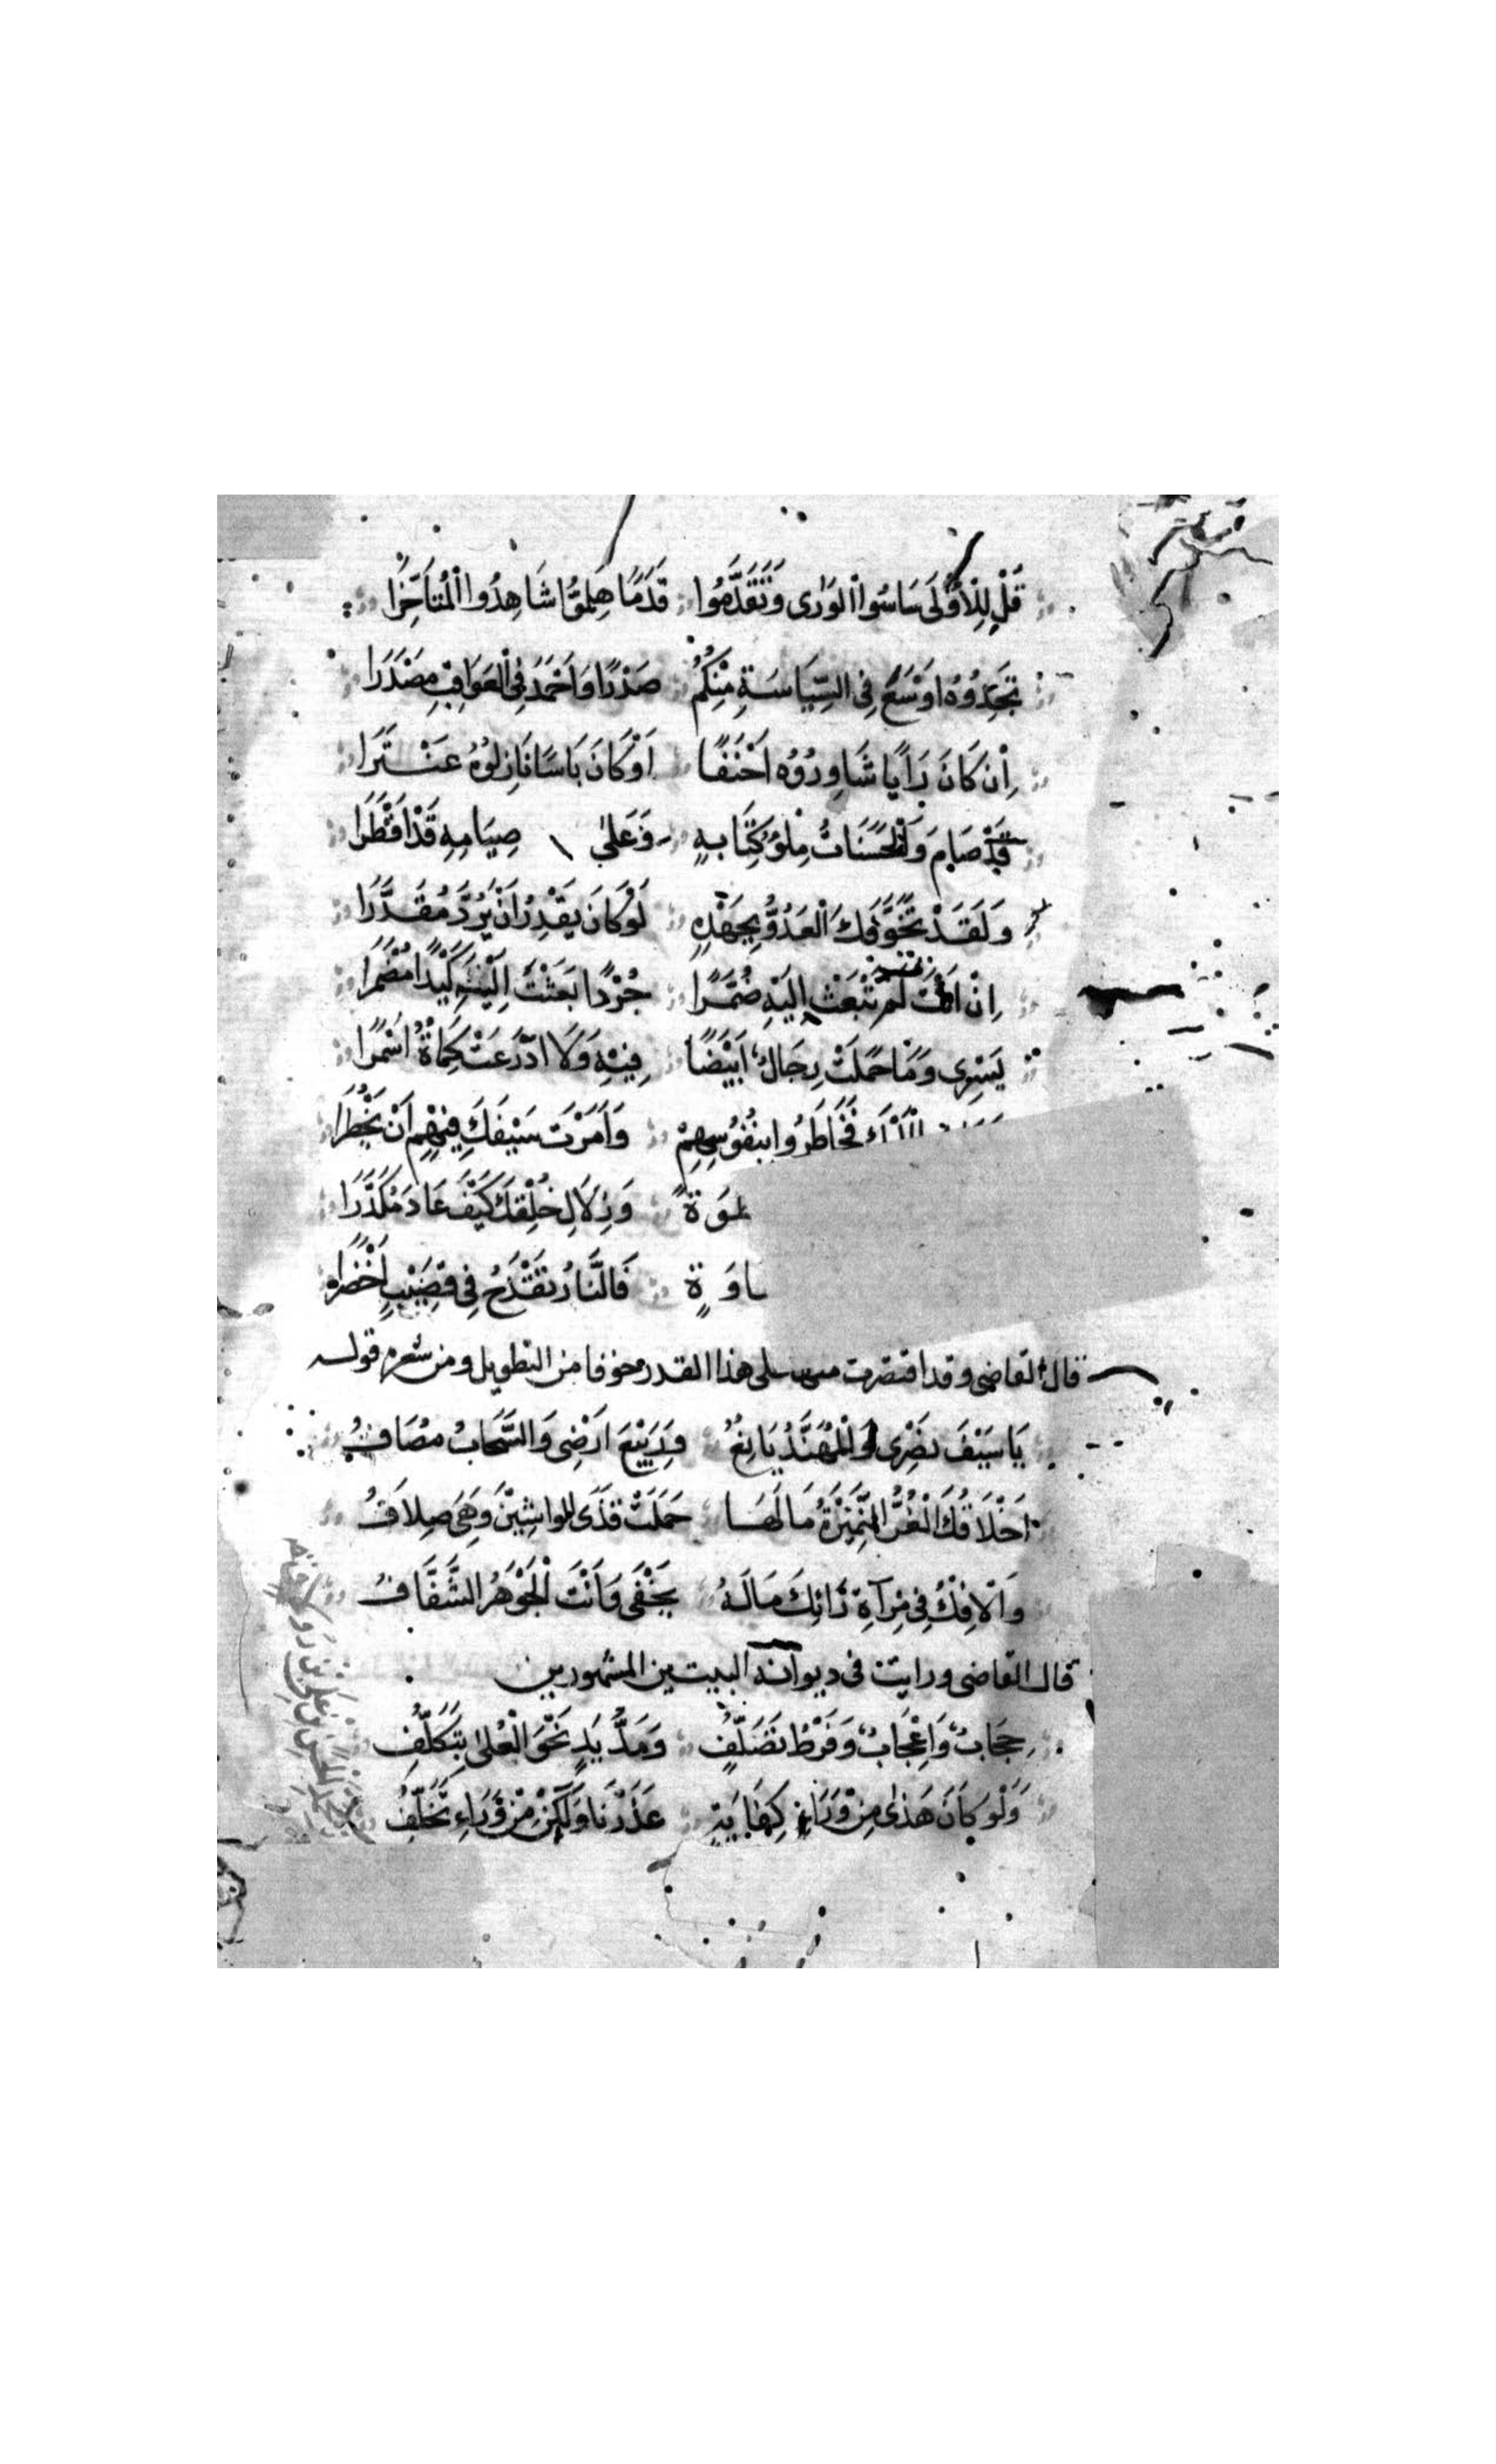 قُلْ لِلْأُولَى سَاسُوا الْوَرَى وَتَقَدَّمُوا قَدَمًا هَلُمُّوا شَاهِدُوا الْمُتَأَخِّرَا
تَجِدُوهُ اوْسَعَ فِي السِّيَاسَةِ مِنْكُمُ صَدْرًا وَاَحْمَدَ فِي الْعَوَاقِبِ مَصْدَرَا
اِنْ كَانَ رَاْيًا شَاوِرُوُه اَحْنَفًا اَوْ كَانَ بَاسًا نَازِلُوُهُ عَنْتَرَا
قَدْ صَامَ وَالْحَسَنَاتُ مِلْؤُ كِتَابِهِ وَعَلَى صِيَامِهِ قَدْ اَفْطَرَا
وَلَقَدْ تَخَوَّفَكَ الْعَدُوُّ بِجَهْدِهِ لَوْ كَانَ يَقْدِرُ اَنْ يَرُدَّ مُقَدَّرَا
اِنْ اَنْتَ لَمْ تَبْعَثْ اِلَيْهِ ضُمَّرًا جُرْدًا بَعَثْتَ اِلَيْهِ كَيْدًا مُضْمَرَا
يَسْرِى وَمَا حَمَلَتْ رِجَالٌ اَبْيَضًا فِيْهِ وَلَا ادَّرَعَتْ كُمَاةٌ اَسْمَرَا
فَخَاطَرُوا بِنُفُوسِهِمْ وَاَمَرْتَ سَيْفَكَ فِيْهِمِ اَنْ يَخْطُرَا
وَزُلَالِ خُلْقِكَ كَيْفَ عَادَ مُكَدَّرَا
فَالنَّارُ تُقْدَحُ فِي قَضِيْبٍ اَخْضَرَا
قال القاضى وقد اقتصرت على هذا القدر خوفا من التطويل ومن شعره قوله
يَا سَيْفَ نَصْرِى وَالْمُهَنَّدُ يَانِعُ وَرَبِيْعَ اَرْضِى وَالسَّحَابُ مُصَافُ
اَخْلَاقُكَ الْغُرُّ النَّمِيْرَةُ مَالَهَا حَمَلَتْ قَذَى الواشِيْنَ وَهْىَ سِلَافُ
وَالْاِفْكُ فِي مِرْآةِ رَائِكَ مَالَهُ يَخْفَى وَاَنْتَ الْجَوْهَرُ الشَّفَّافُ
قال القاضى ورايت فى ديوانه البيتين المشهورين
حِجَابٌ وَاِعْجَابٌ وَفَرْطُ تَصَلُّفٍ وَمَدُّ يَدٍ نَحْوَ الْعُلَى بِتَكَلُّفِ
وَلَوْ كَانَ هَذَا مِنْ وَرَاءِ كِفَايَةٍ عَذَرْنَا وَلَكِنْ مِنْ وَرَاءِ تَخَلُّفِ